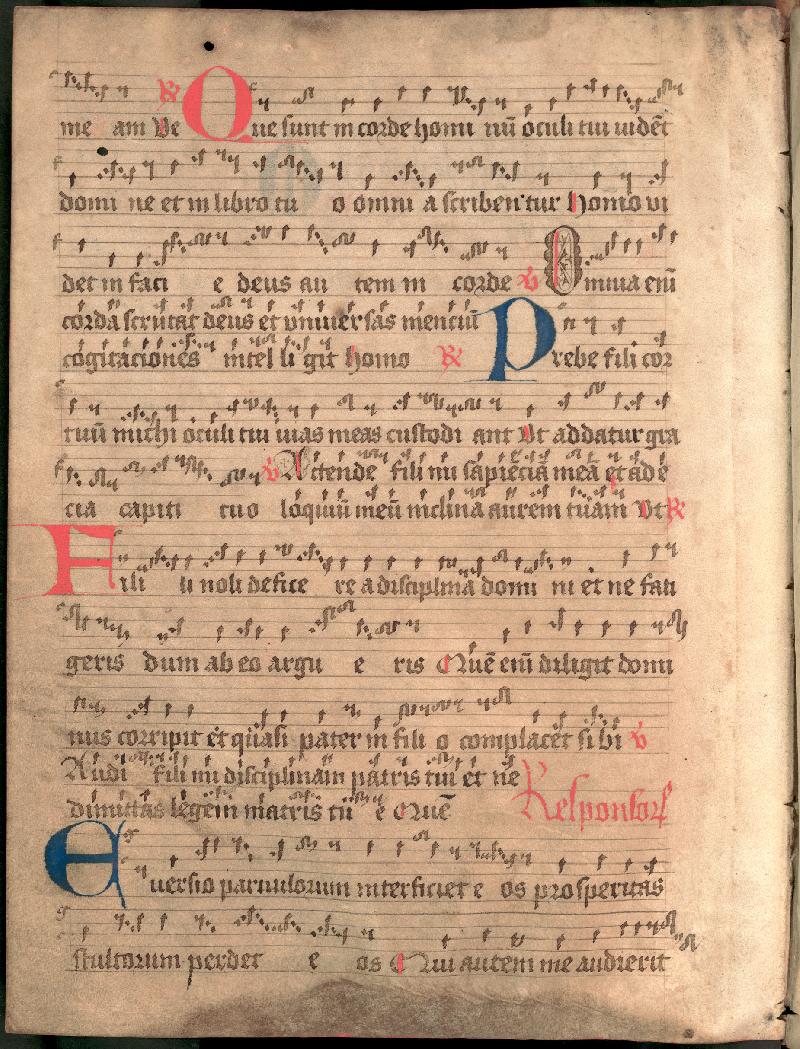 me am Ve ℟ Que sunt in corde homi nū oculi tui uidēt
domi ne et in libro tu o omni a scribentur homo vi
det in faci e deus au tem in corde ℣ Omnia enī
corda scrutat deus et vniuersas mentiū
cogitaciones intel li git homo ℟ Prebe fili cor
tuū michi oculi tui uias meas custodi ant Vt addatur gra
cia capiti tuo ℣ Attende fili mi sapiēciā meā et ad e
loquiū meū inclina aurem tuam Vt ℟
Fili li noli defice re a disciplina domi ni et ne fati
geris dum ab eo argu e ris Quē enī diligit domi
nus corripit et quasi pater in fili o complacet si bi ℣
Audi fili mi disciplinam patris tui et ne
dimittas legem matris tu e Quē Responsor
Euersio paruulorum interficiet e os prosperitas
stultorum perdet e os Qui autem me audierit